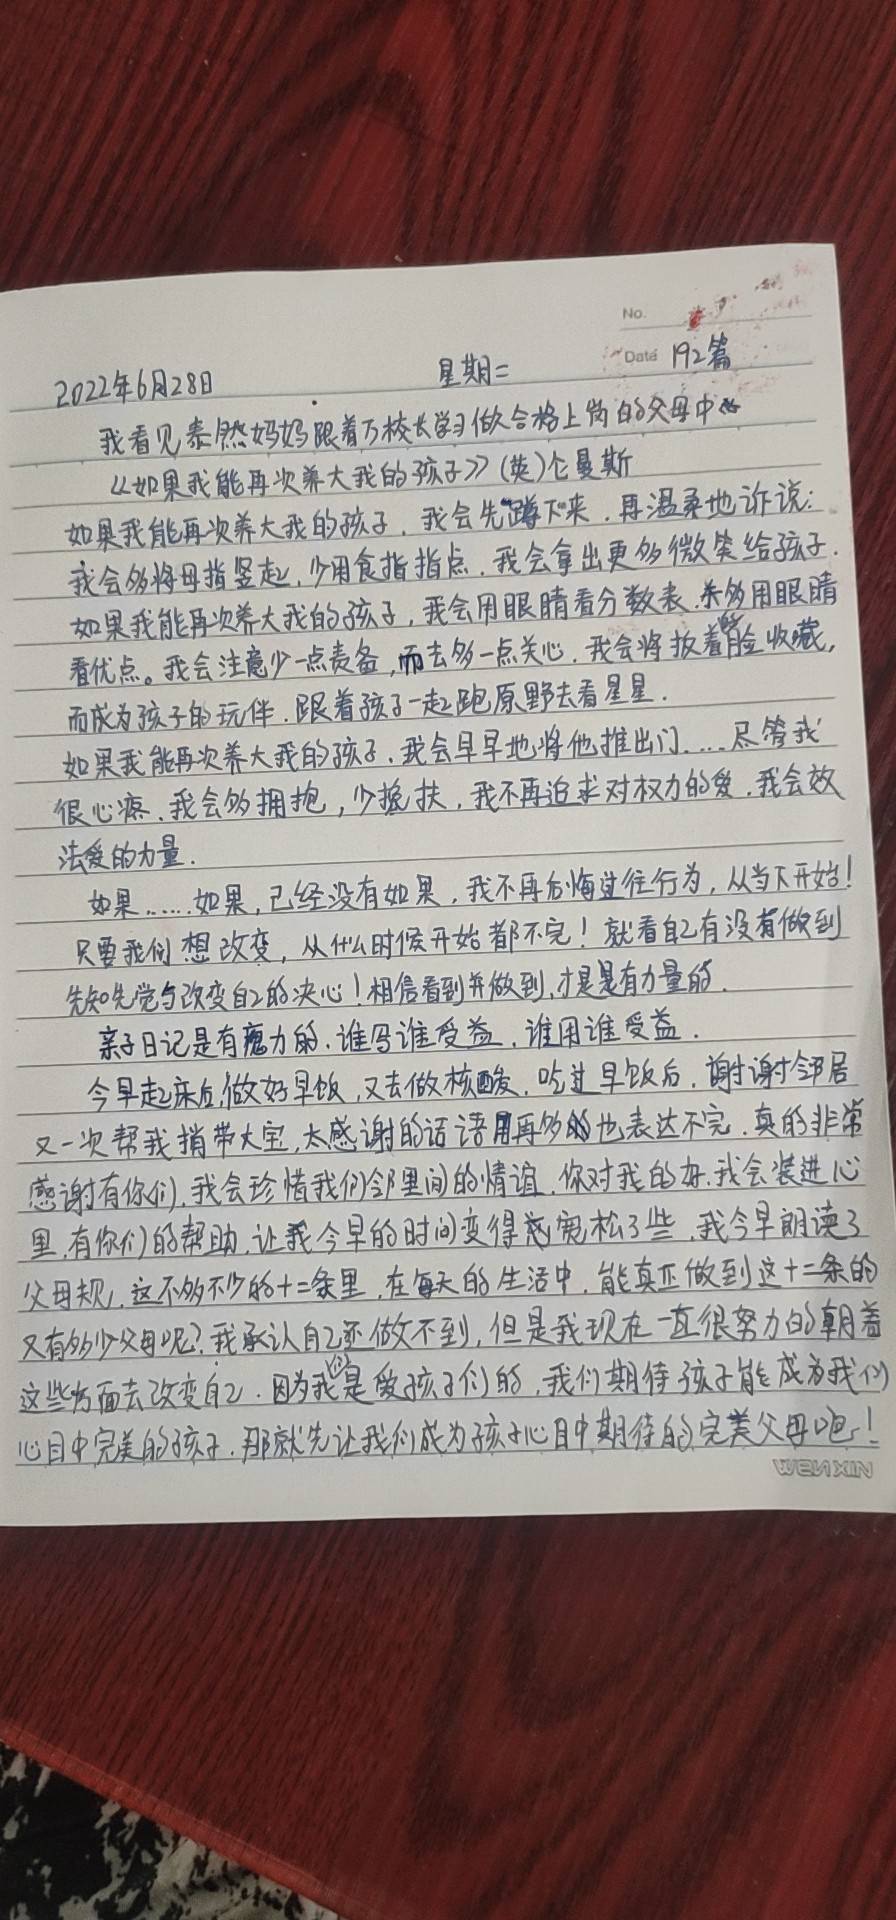 No.
Date 192篇
2022年6月28日 星期二
我看见泰然妈妈跟着万校长学习做合格上岗的父母中
《如果我能再次养大我的孩子》(英)仑曼斯
如果我能再次养大我的孩子,我会先蹲下来,再温柔地诉说:
我会多将母指竖起,少用食指指点,我会拿出更多微笑给孩子.
如果我能再次养大我的孩子,我会用眼睛看分数表,多用眼睛
看优点。我会注意少一点责备,而去多一点关心,我会将板着的脸收藏,
而成为孩子的玩伴,跟着孩子一起跑原野去看星星.
如果我能再次养大我的孩子,我会早早地将他推出门....尽管我
很心疼,我会多拥抱,少搀扶,我不再追求对权力的爱,我会效
法爱的力量.
如果......如果,已经没有如果,我不再后悔过往行为,从当下开始!
只要我们想改变,从什么时候开始都不完!就看自己有没有做到
先知先觉与改变自己的决心!相信看到并做到,才是是有力量的.
亲子日记是有魔力的,谁写谁受益,谁用谁受益.
今早起床后,做好早饭,又去做核酸,吃过早饭后,谢谢邻居
又一次帮我捎带大宝,太感谢的话语用再多的也表达不完,真的非常
感谢有你们,我会珍惜我们邻里间的情谊,你对我的好,我会装进心
里,有你们的帮助,让我今早的时间变得宽松了些,我今早朗读了
父母规,这不多不少的十二条里,在每天的生活中,能真正做到这十二条的
又有多少父母呢?我承认自己还做不到,但是我现在一直很努力的朝着
这些方面去改变自己.因为我们是爱孩子们的,我们期待孩子能成为我们
心目中完美的孩子,那就先让我们成为孩子心目中期待的完美父母吧!
WENXIN